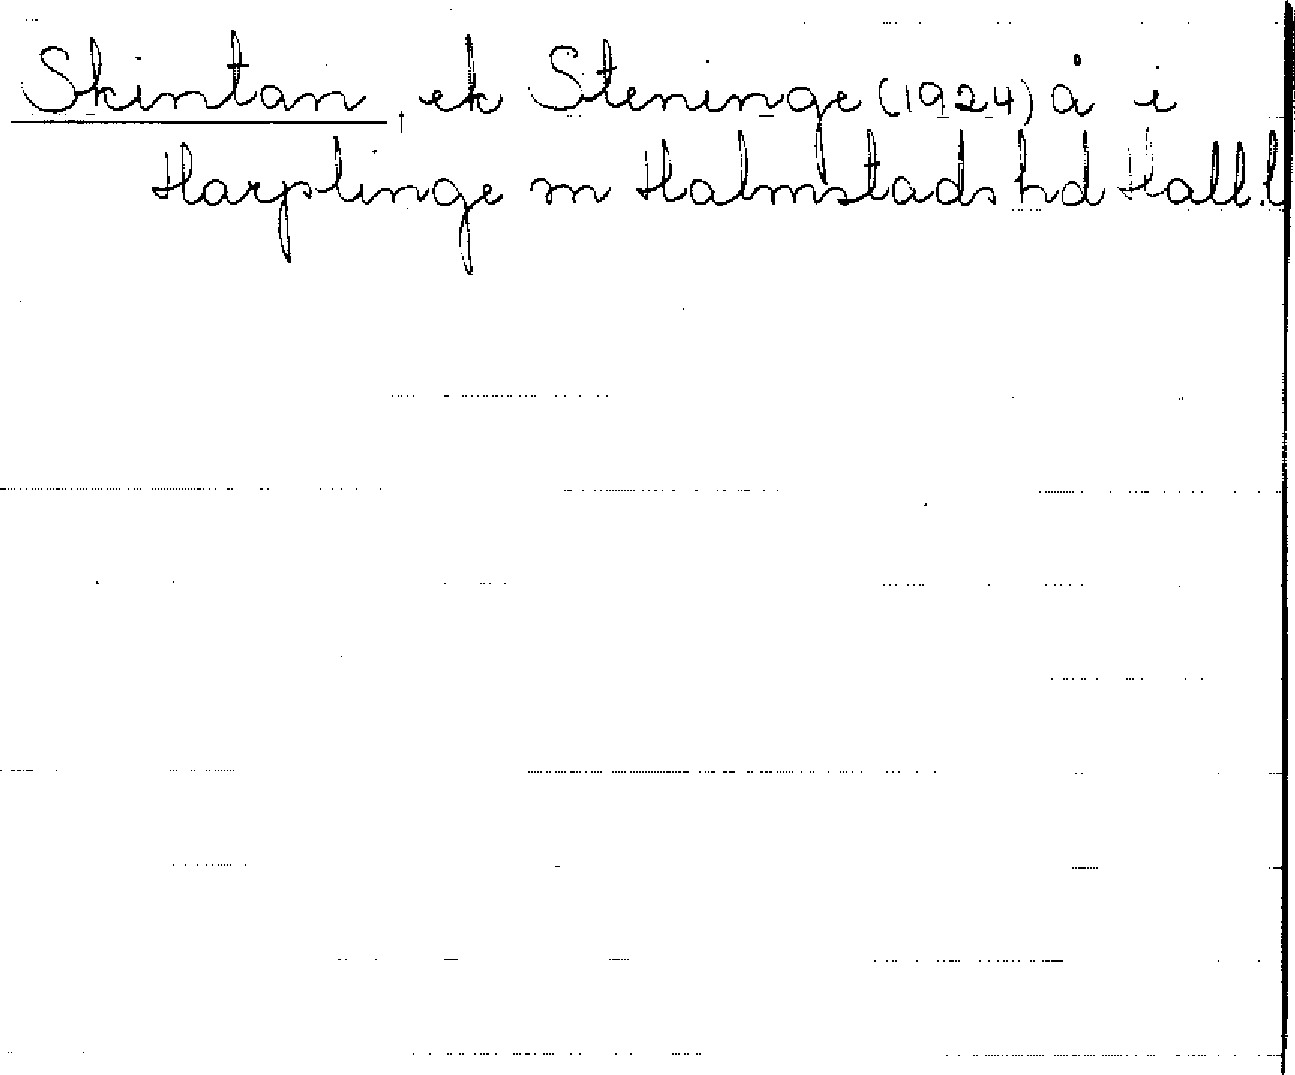 Skintan, ek Steninge (1924) å i
Harplinge sn Halmstads hd Hall.l